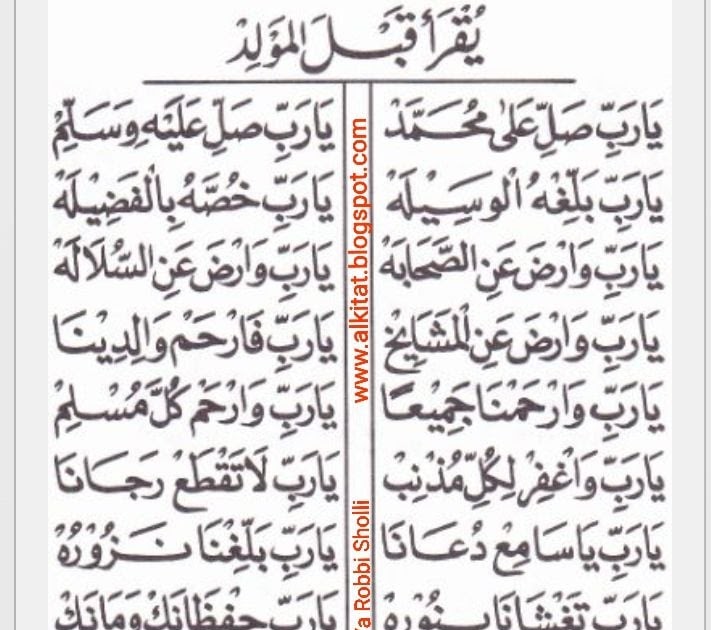 يُقْرَأُ قَبْلَ الْمَوْلِدْ
يَارَبِّ صَلِّ عَلٰى مُحَمَّدْ يَارَبِّ صَلِّ عَلَيْهِ وَسَلِّمْ
يَارَبِّ بَلِّغْهُ الْوَسِيْلَهْ يَارَبِّ خُصَّهُ بِالْفَضِيْلَهْ
يَارَبِّ وَارْضَ عَنِ الصَّحَابَهْ يَارَبِّ وَارْضَ عَنِ السُّلَالَهْ
يَارَبِّ وَارْضَ عَنِ الْمَشَايِخْ يَارَبِّ فَارْحَمْ وَالِدِيْنَا
يَارَبِّ وَارْحَمْنَا جَمِيْعًا يَارَبِّ وَارْحَمْ كُلَّ مُسْلِمْ
يَارَبِّ وَاغْفِرْ لِكُلِّ مُذْنِبْ يَارَبِّ لَا تَقْطَعْ رَجَانَا
يَارَبِّ يَاسَامِعْ دُعَانَا يَارَبِّ بَلِّغْنَا نَزُوْرُهْ
يَارَبِّ تَغْشَانَا بِنُوْرِهْ يَارَبِّ حِفْظَانَكْ وَمَانَكْ
www.alkitat.blogspot.com
Ya Robbi Sholli